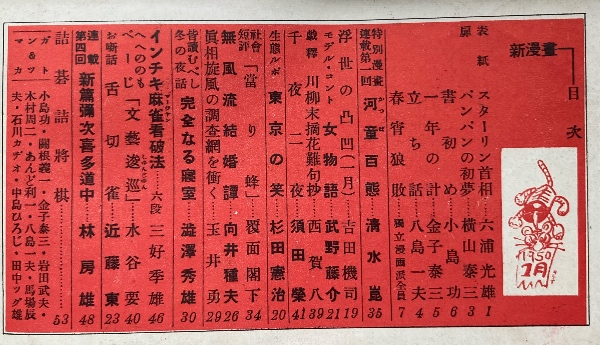 新漫畫
目次
1950
1月
表紙 スターリン首相……六浦光雄 1
扉 パンパンの初夢……横山泰三 3
書初め……小島功 6
一年の計……金子泰三 5
立ち話……八島一夫 4
春宵狼敗 獨立漫画派全員 7
特別漫畫連載第一回 河童百態 清水崑 35
浮世の凸凹(一月)……吉田機司 19
モデル・コント 女物語……武野藤介 21
戯釋 川柳末摘花難句抄……西賀八 39
千一夜二夜……須田榮 41
生態ルポ 東京の笑……杉田憲治 20
社會短評 「當り蜂」……覆面閣下 34
眞相旋風の調査網を衝く……玉井勇 29
無風流結婚譚……向井種夫 26
皆讀むべし冬の夜話 完全なる寢室……澁澤秀雄 30
インチキ麻雀看破法……六段 三好季雄 46
へへののもべーじ 「文藝逡巡」……水谷要 40
お噺話 舌切雀……近藤東 23
連載第四回 新篇彌次喜多道中……林房雄 48
詰碁詰將棋…… 53
ガト 小島功・關根義一・金子泰三・岩田武夫・
ン&ツ 木村周二・あんど利一・八島一夫・馬場辰
マカ 夫・石川カヂオ・中島ひろじ・田中ッグ雄